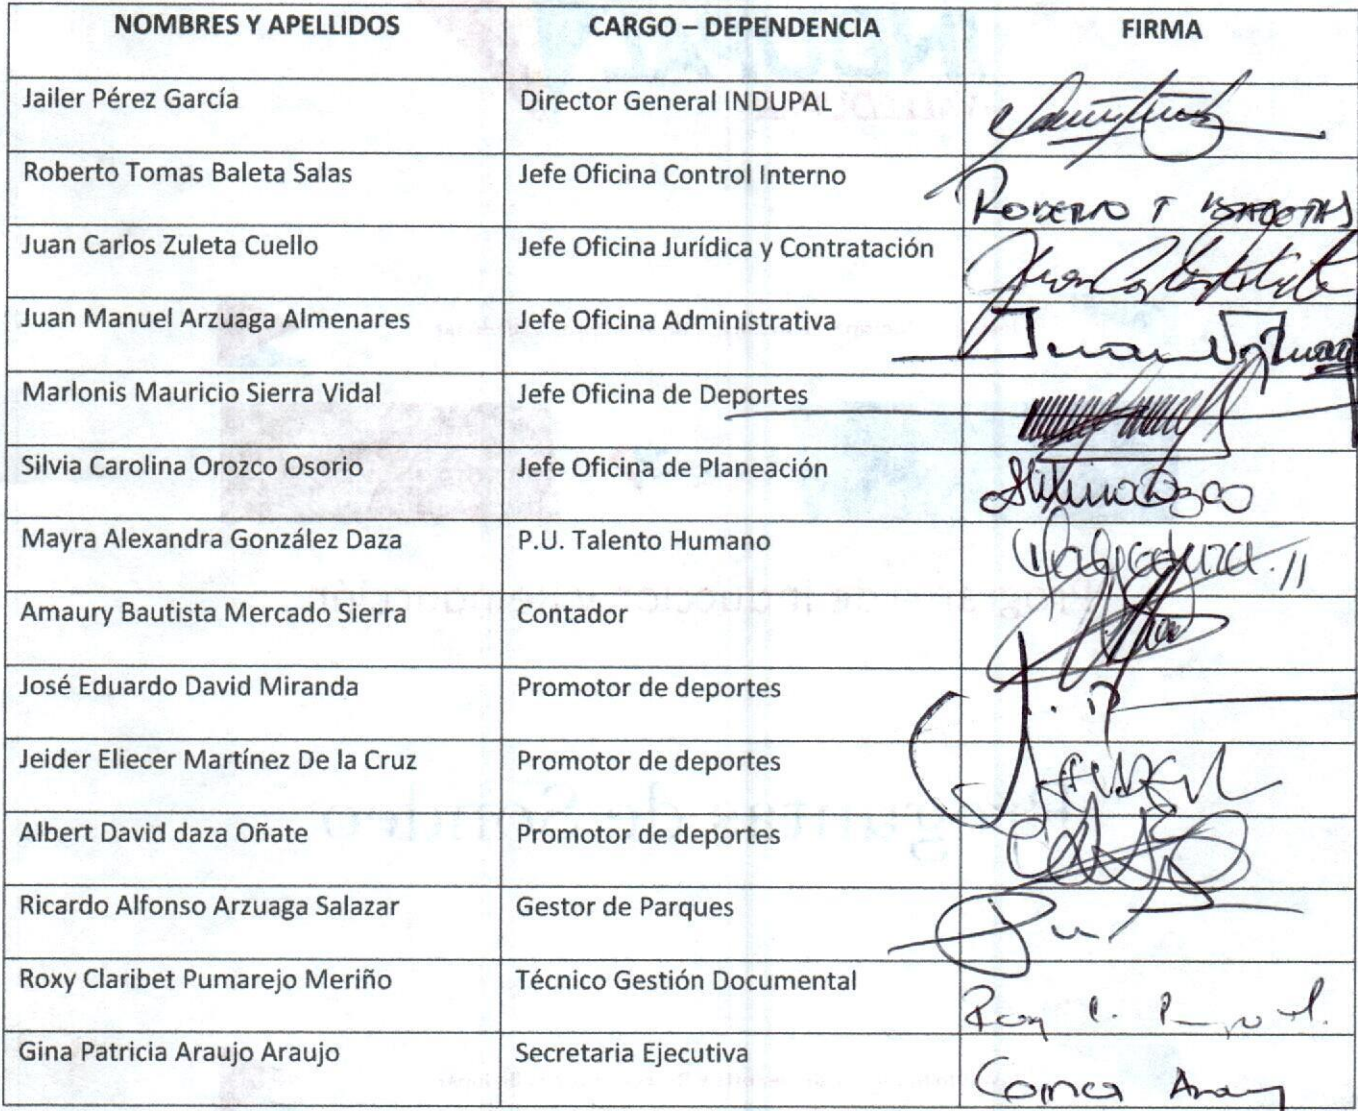 NOMBRES Y APELLIDOS CARGO – DEPENDENCIA FIRMA
Jailer Pérez García Director General INDUPAL
Roberto Tomas Baleta Salas Jefe Oficina Control Interno
Juan Carlos Zuleta Cuello Jefe Oficina Jurídica y Contratación
Juan Manuel Arzuaga Almenares Jefe Oficina Administrativa
Marlonis Mauricio Sierra Vidal Jefe Oficina de Deportes
Silvia Carolina Orozco Osorio Jefe Oficina de Planeación
Mayra Alexandra González Daza P.U. Talento Humano
Amaury Bautista Mercado Sierra Contador
José Eduardo David Miranda Promotor de deportes
Jeider Eliecer Martínez De la Cruz Promotor de deportes
Albert David daza Oñate Promotor de deportes
Ricardo Alfonso Arzuaga Salazar Gestor de Parques
Roxy Claribet Pumarejo Meriño Técnico Gestión Documental
Gina Patricia Araujo Araujo Secretaria Ejecutiva